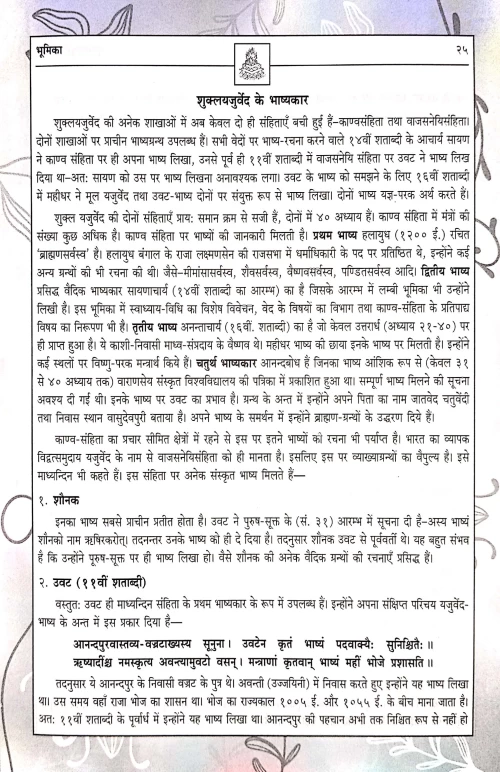 भूमिका २५
शुक्लयजुर्वेद के भाष्यकार
शुक्लयजुर्वेद की अनेक शाखाओं में अब केवल दो ही संहिताएँ बची हुई हैं–काण्वसंहिता तथा वाजसनेयिसंहिता।
दोनों शाखाओं पर प्राचीन भाष्यग्रन्थ उपलब्ध हैं। सभी वेदों पर भाष्य-रचना करने वाले १४वीं शताब्दी के आचार्य सायण
ने काण्व संहिता पर ही अपना भाष्य लिखा, उनसे पूर्व ही ११वीं शताब्दी में वाजसनेयि संहिता पर उवट ने भाष्य लिख
दिया था–अत: सायण को उस पर भाष्य लिखना अनावश्यक लगा। उवट के भाष्य को समझने के लिए १६वीं शताब्दी
में महीधर ने मूल यजुर्वेद तथा उवट-भाष्य दोनों पर संयुक्त रूप से भाष्य लिखा। दोनों भाष्य यज्ञ-परक अर्थ करते हैं।
शुक्ल यजुर्वेद की दोनों संहिताएँ प्राय: समान क्रम से सजी हैं, दोनों में ४० अध्याय है। काण्व संहिता में मंत्रों की
संख्या कुछ अधिक है। काण्व संहिता पर भाष्यों की जानकारी मिलती है। प्रथम भाष्य हलायुध (१२०० ई.) रचित
'ब्राह्मणसर्वस्व' है। हलायुध बंगाल के राजा लक्ष्मणसेन की राजसभा में धर्माधिकारी के पद पर प्रतिष्ठित थे, इन्होंने कई
अन्य ग्रन्थों की भी रचना की थी। जैसे–मीमांसासर्वस्व, शैवसर्वस्व, वैष्णवसर्वस्व, पण्डितसर्वस्व आदि। द्वितीय भाष्य
प्रसिद्ध वैदिक भाष्यकार सायणाचार्य (१४वीं शताब्दी का आरम्भ) का है जिसके आरम्भ में लम्बी भूमिका भी उन्होंने
लिखी है। इस भूमिका में स्वाध्याय-विधि का विशेष विवेचन, वेद के विषयों का विभाग तथा काण्व-संहिता के प्रतिपाद्य
विषय का निरूपण भी है। तृतीय भाष्य अनन्ताचार्य (१६वीं. शताब्दी) का है जो केवल उत्तरार्ध (अध्याय २१-४०) पर
ही प्राप्त हुआ है। ये काशी-निवासी माध्व-संप्रदाय के वैष्णव थे। महीधर भाष्य की छाया इनके भाष्य पर मिलती है। इन्होंने
कई स्थलों पर विष्णु-परक मन्त्रार्थ किये हैं। चतुर्थ भाष्यकार आनन्दबोध हैं जिनका भाष्य आंशिक रूप से (केवल ३१
से ४० अध्याय तक) वाराणसेय संस्कृत विश्वविद्यालय की पत्रिका में प्रकाशित हुआ था। सम्पूर्ण भाष्य मिलने की सूचना
अवश्य दी गई थी। इनके भाष्य पर उवट का प्रभाव है। ग्रन्थ के अन्त में इन्होंने अपने पिता का नाम जातवेद चतुर्वेदी
तथा निवास स्थान वासुदेवपुरी बताया है। अपने भाष्य के समर्थन में इन्होंने ब्राह्मण-ग्रन्थों के उद्धरण दिये हैं।
काण्व-संहिता का प्रचार सीमित क्षेत्रों में रहने से इस पर इतने भाष्यों को रचना भी पर्याप्त है। भारत का व्यापक
विद्वत्समुदाय यजुर्वेद के नाम से वाजसनेयिसंहिता को ही मानता है। इसलिए इस पर व्याख्याग्रन्थों का वैपुल्य है। इसे
माध्यन्दिन भी कहते हैं। इस संहिता पर अनेक संस्कृत भाष्य मिलते हैं—
१. शौनक
इनका भाष्य सबसे प्राचीन प्रतीत होता है। उवट ने पुरुष-सूक्त के (सं. ३१) आरम्भ में सूचना दी है–अस्य भाष्यं
शौनको नाम ऋषिरकरोत्। तदनन्तर उनके भाष्य को ही दे दिया है। तदनुसार शौनक उवट से पूर्ववर्ती थे। यह बहुत संभव
है कि उन्होंने पुरूष-सूक्त पर ही भाष्य लिखा हो। वैसे शौनक की अनेक वैदिक ग्रन्थों की रचनाएँ प्रसिद्ध हैं।
२. उवट (११वीं शताब्दी)
वस्तुत: उवट ही माध्यन्दिन संहिता के प्रथम भाष्यकार के रूप में उपलब्ध हैं। इन्होंने अपना संक्षिप्त परिचय यजुर्वेद-
भाष्य के अन्त में इस प्रकार दिया है—
आनन्दपुरवास्तव्य-वज्रटाख्यस्य सूनुना। उवटेन कृतं भाष्यं पदवाक्यै: सुनिश्चितै:॥
ऋष्यादींश्च नमस्कृत्य अवन्त्यामुवटो वसन्। मन्त्राणां कृतवान् भाष्यं महीं भोजे प्रशासति॥
तदनुसार ये आनन्दपुर के निवासी वज्रट के पुत्र थे। अवन्ती (उज्जयिनी) में निवास करते हुए इन्होंने यह भाष्य लिखा
था। उस समय वहाँ राजा भोज का शासन था। भोज का राज्यकाल १००५ ई. और १०५५ ई. के बीच माना जाता है।
अत: ११वीं शताब्दी के पूर्वार्ध में इन्होंने यह भाष्य लिखा था। आनन्दपुर की पहचान अभी तक निश्चित रूप से नहीं हो